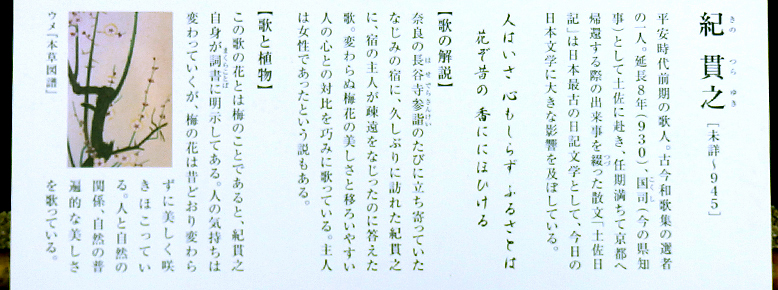 紀貫之［未詳～945］
きの つら ゆき
平安時代前期の歌人。古今和歌集の選者
の一人。延長8年(930)、国司(今の県知
こくし
事)として土佐に赴き、任期満ちて京都へ
帰還する際の出来事を綴った散文「土佐日
つづ
記」は日本最古の日記文学として、今日の
日本文学に大きな影響を及ぼしている。
人はいさ 心もしらず ふるさとは
花ぞ昔の 香ににほひける
【歌の解説】
奈良の長谷寺参詣のたびに立ち寄っていた
はせでらさんけい
なじみの宿に、久しぶりに訪れた紀貫之
に、宿の主人が疎遠をなじったのに答えた
歌。変わらぬ梅花の美しさと移ろいやすい
人の心との対比を巧みに歌っている。主人
は女性であったという説もある。
【歌と植物】
この歌の花とは梅のことであると、紀貫之
自身が詞書に明示してある。人の気持ちは
ことばがき
変わっていくが、梅の花は昔どおり変わら
ずに美しく咲
きほこってい
る。人と自然の
関係、自然の普
遍的な美しさ
を歌っている。
ウメ『本草図譜』